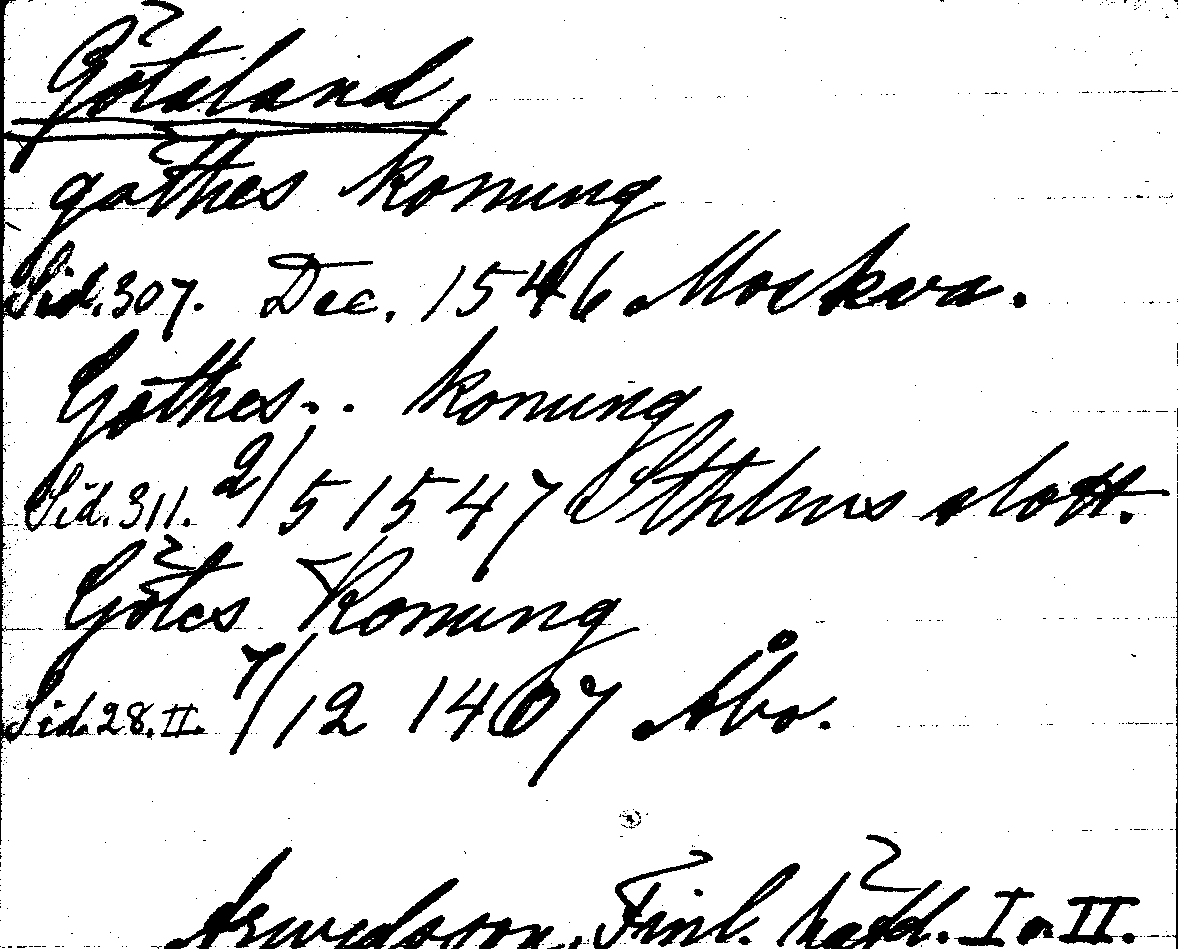 Götaland,
göthes konung
Sid. 307. Dec. 1546 Moskva.
Göthes.. konung
Sid. 311. 2/5 1547 Sthlms slott.
Götes Konung
Sid. 28. II. 7/12 1407 Åbo.
Arwidsson, Finl. häfd. I o. II.